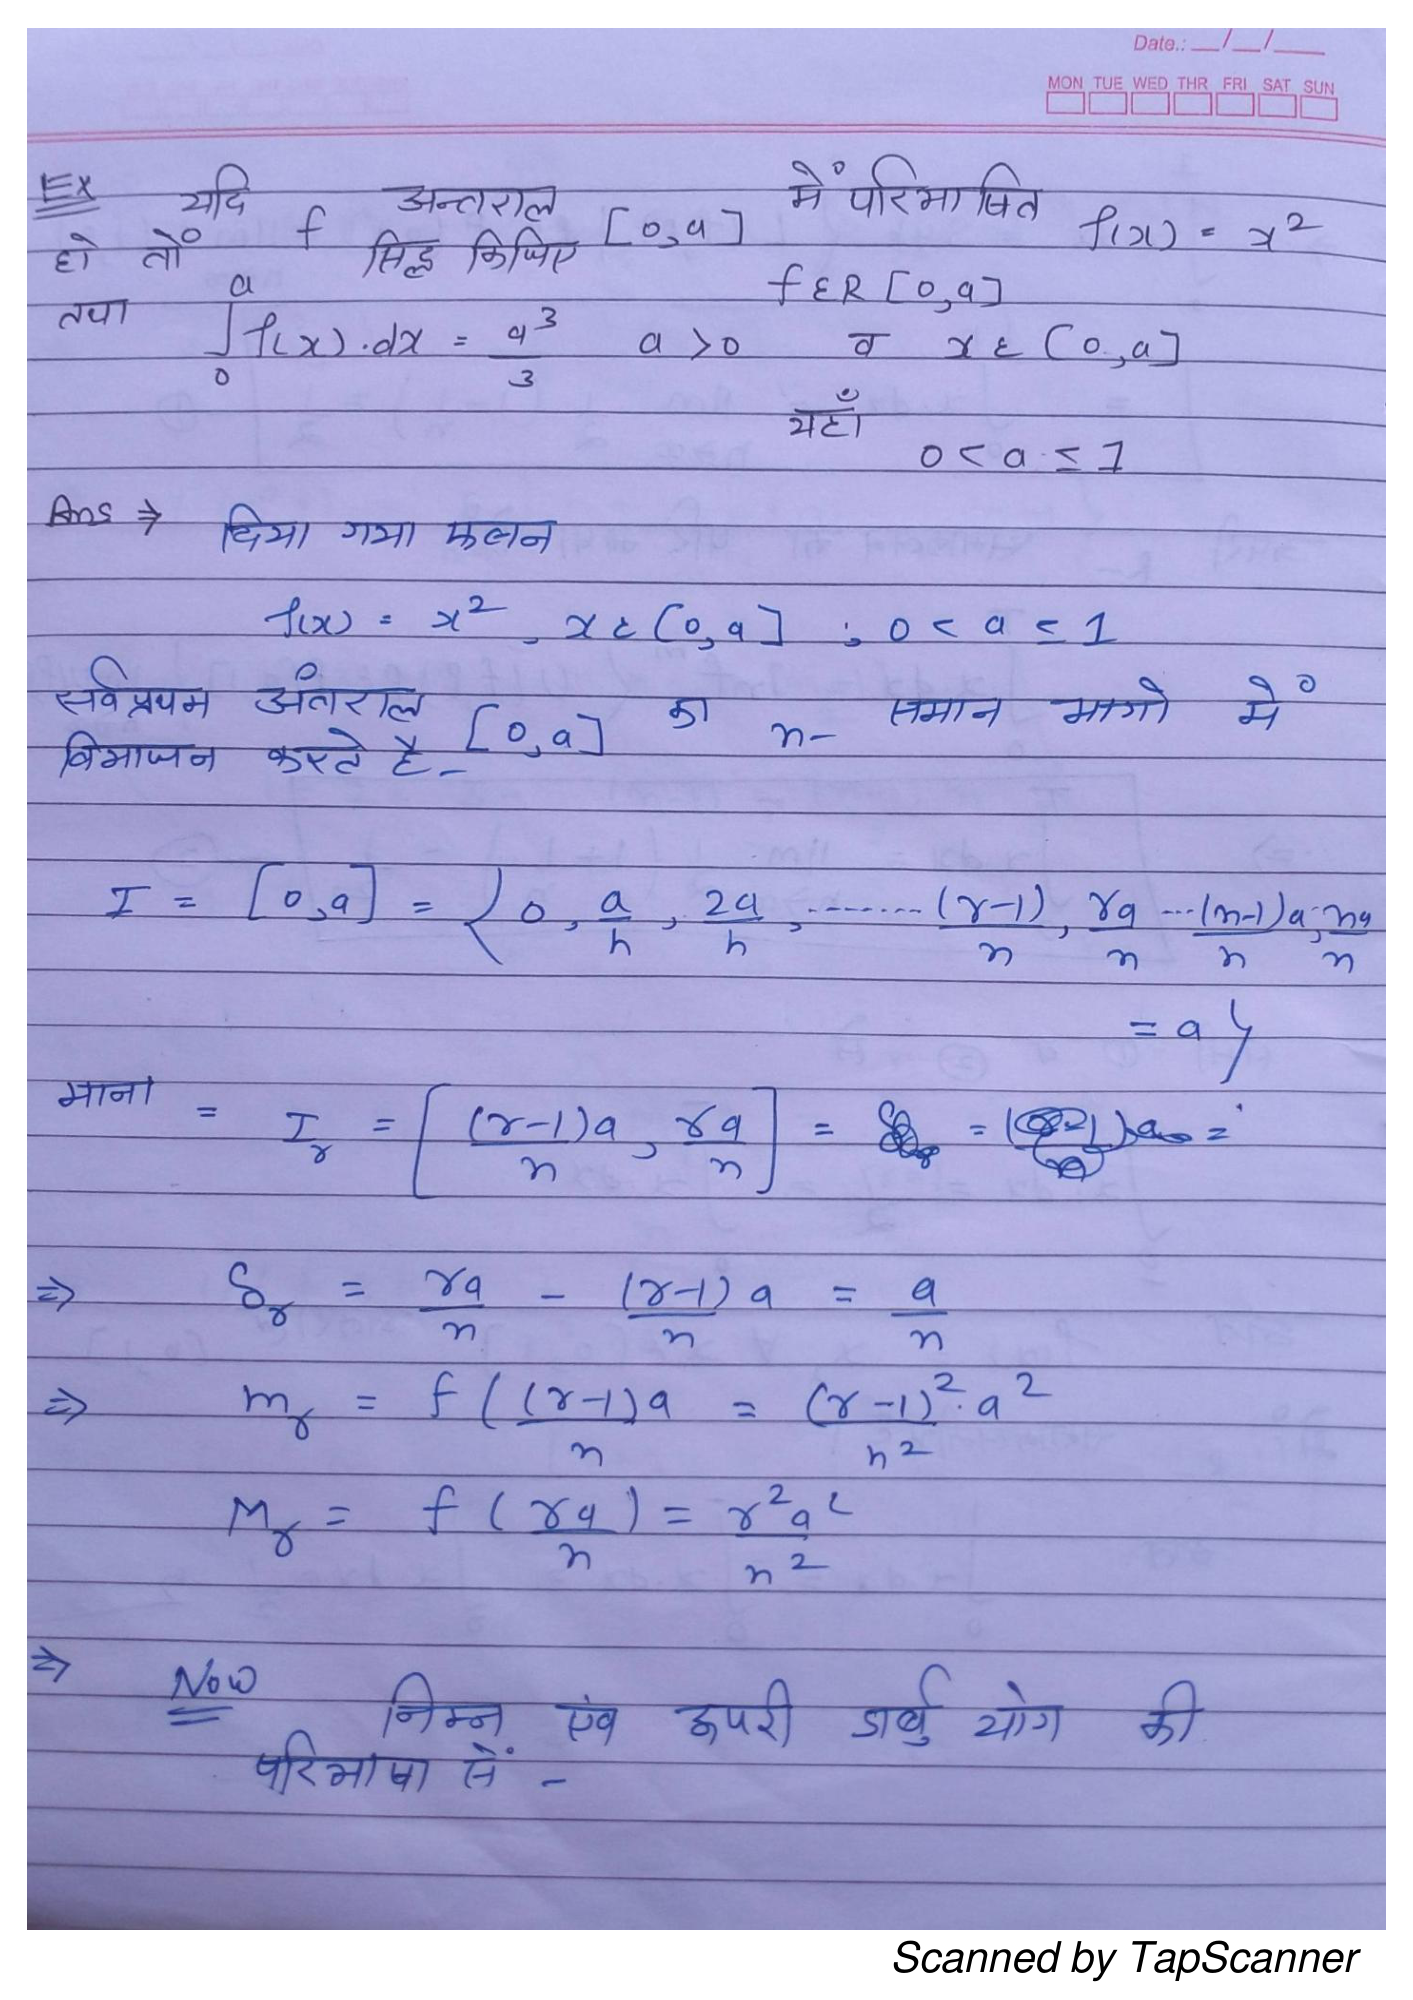 Date.: __/__/___
MON TUE WED THR FRI SAT SUN
Ex यदि f अन्तराल [0,a] में परिभाषित f(x) = x²
हो तों सिद्ध किजिए f ε R [0,a]
तथा ∫₀ᵃ f(x).dx = a³/3 a > 0 व x ε [0,a]
यहाँ 0 < a ≤ 1
Ans ⇒ दिया गया फलन
f(x) = x², x ε [0,a] ; 0 < a ≤ 1
सर्वप्रथम अंतराल [0,a] का n- समान भागो में
विभाजन करते है-
I = [0,a] = { 0, a/n, 2a/n, ........ (r-1)/n, ra/n ... (n-1)a/n, na/n
= a }
माना = Iᵣ = [(r-1)a/n, ra/n] =
⇒ δᵣ = ra/n - (r-1)a/n = a/n
⇒ mᵣ = f((r-1)a/n = (r-1)².a²/n²
Mᵣ = f(ra/n) = r²a²/n²
⇒ Now निम्न एंव ऊपरी डार्बु योग की
परिभाषा सें -
Scanned by TapScanner